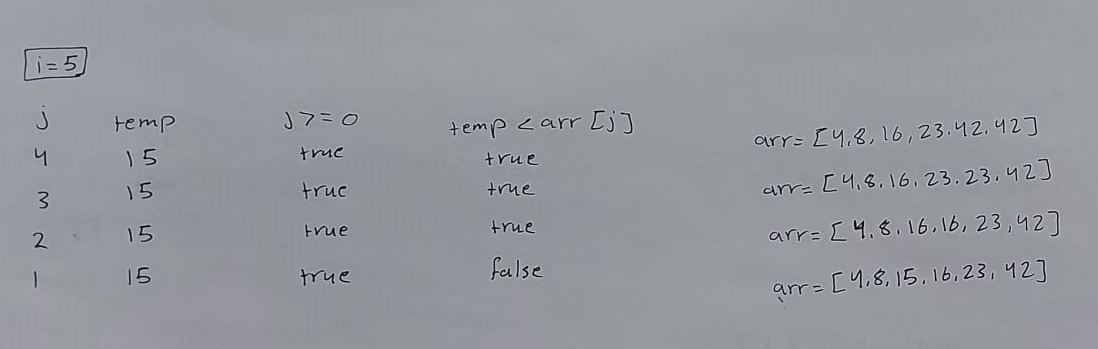 i=5
j temp j>=0 temp < arr [j]
4 15 true true arr= [4,8,16,23.42.42]
3 15 true true arr= [4,8.16.23.23.42]
2 15 true true arr= [4.8.16.16, 23,42]
1 15 true false arr= [4.8,15.16,23, 42]